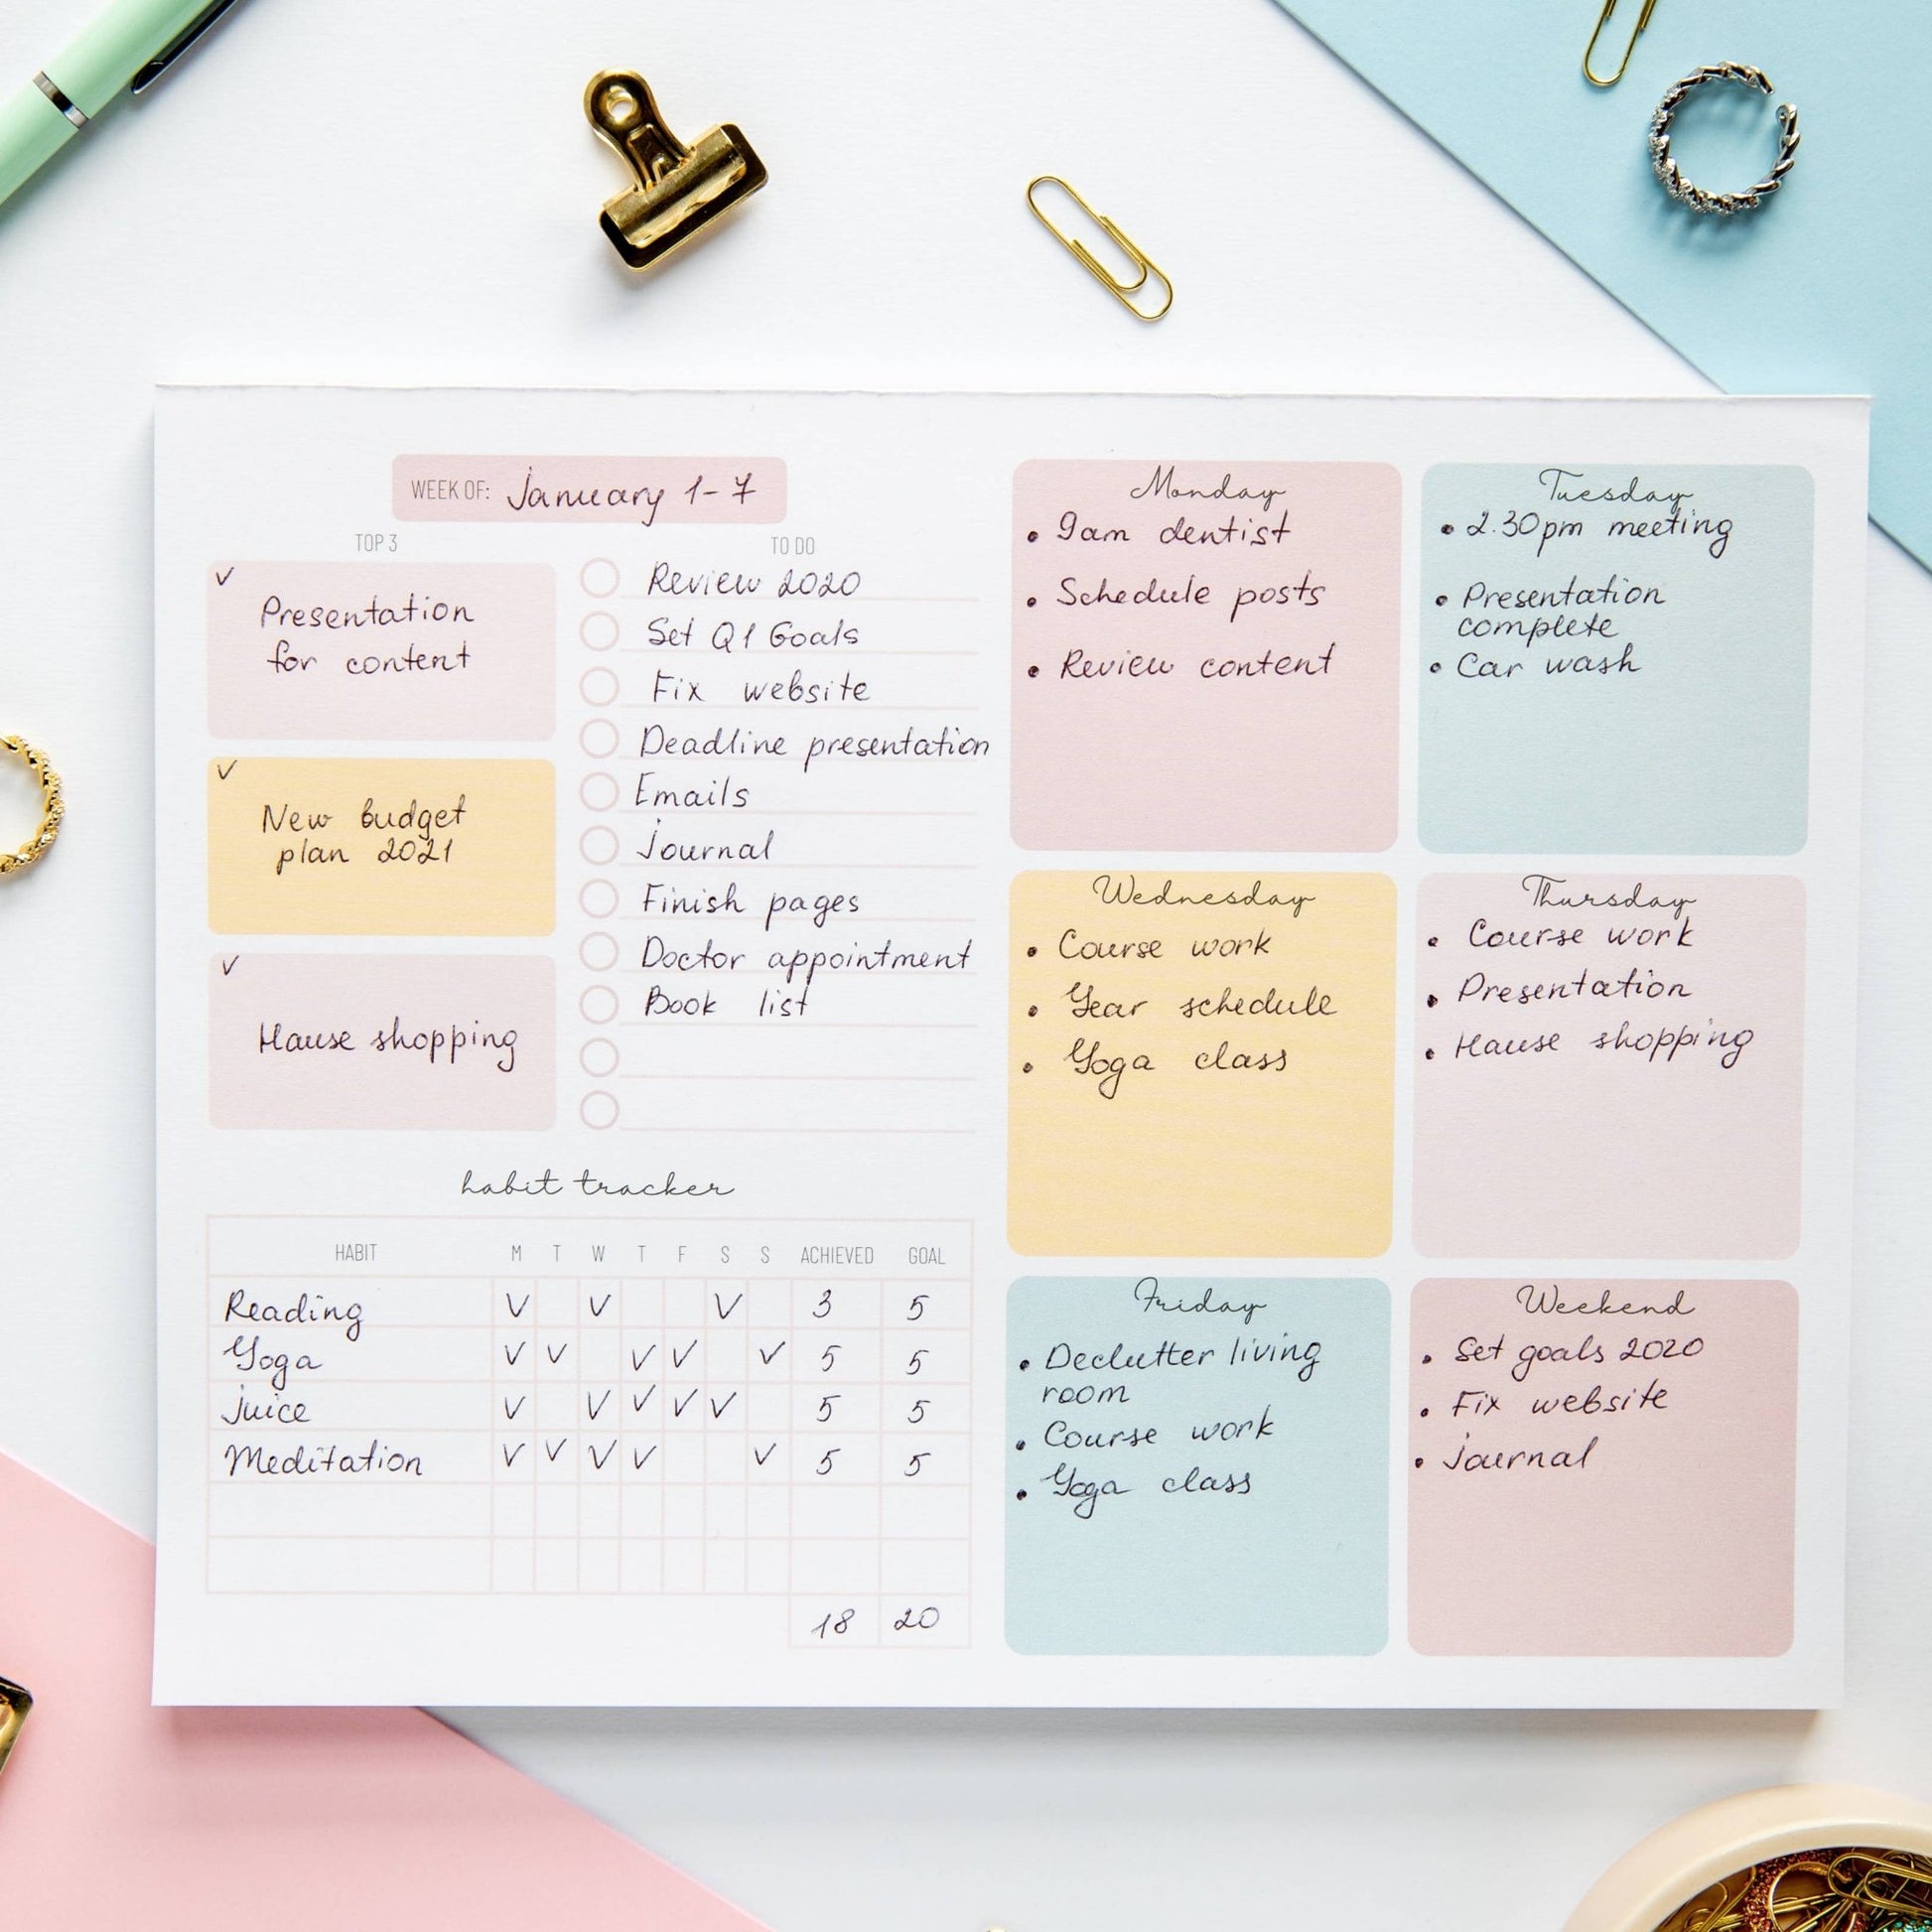 WEEK OF: January 1-7
TOP 3
✓
Presentation
for content
✓
New budget
plan 2021
✓
Hause shopping
TO DO
Review 2020
Set Q1 Goals
Fix website
Deadline presentation
Emails
Journal
Finish pages
Doctor appointment
Book list
habit tracker
HABIT M T W T F S S ACHIEVED GOAL
Reading ✓ ✓ ✓ 3 5
Yoga ✓ ✓ ✓ ✓ ✓ 5 5
Juice ✓ ✓ ✓ ✓ ✓ 5 5
Meditation ✓ ✓ ✓ ✓ ✓ 5 5
18 20
Monday
• 9am dentist
• Schedule posts
• Review content
Tuesday
• 2.30pm meeting
• Presentation
complete
• Car wash
Wednesday
• Course work
• Year schedule
• Yoga class
Thursday
• Course work
• Presentation
• Hause shopping
Friday
• Declutter living
room
• Course work
• Yoga class
Weekend
• Set goals 2020
• Fix website
• Journal